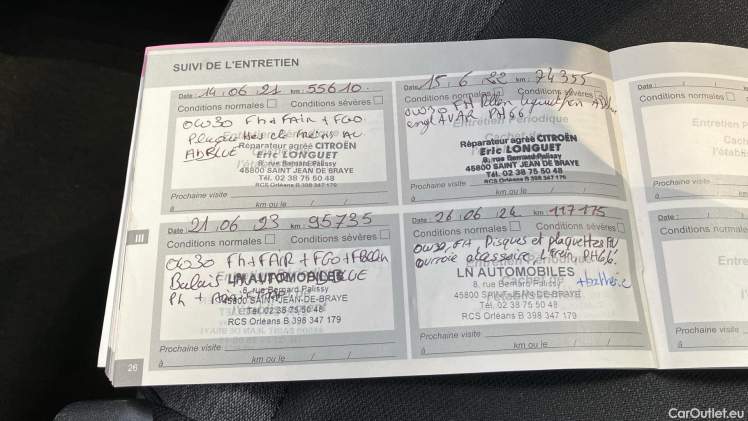 SUIVI DE L'ENTRETIEN
Date : 14.06.21 km : 55610.
Conditions normales Conditions sévères
0W30 FH + FAir + FGO
Plaquettes de freins AV
AdBLUE
Réparateur agréé CITROËN
Eric LONGUET
8, rue Bernard Palissy
45800 SAINT JEAN DE BRAYE
Tél. 02 38 75 50 48
RCS Orléans B 398 347 179
Prochaine visite
à km ou le / /
Date : 15.6.22 km : 74355
Conditions normales Conditions sévères
0W30 FH
AVAR PH66
Entretien Périodique
Réparateur agréé CITROËN
Eric LONGUET
8, rue Bernard Palissy
45800 SAINT JEAN DE BRAYE
Tél. 02 38 75 50 48
RCS Orléans B 398 347 179
Prochaine visite
à km ou le / /
Date :
Conditions normales
Entretien P
Cach
l'étab
Prochaine visite
à
III
Date : 21.06.23 km : 95735
Conditions normales Conditions sévères
0W30 FH + FAIR + FGO +
Balais
PH +
LN AUTOMOBILES
8, rue Bernard Palissy
45800 SAINT-JEAN-DE-BRAYE
Tél. 02 38 75 50 48
RCS Orléans B 398 347 179
Prochaine visite
à km ou le / /
Date : 26.06.24 km : 117175
Conditions normales Conditions sévères
0W30, FH, Disques et plaquettes AV
courroie accessoire, PH66
LN AUTOMOBILES
+ batterie
8, rue Bernard Palissy
45800 SAINT-JEAN-DE-BRAYE
Tél. 02 38 75 50 48
RCS Orléans B 398 347 179
Prochaine visite
à km ou le / /
Date :
Conditions normales
Prochaine visite
à
26
CarOutlet.eu